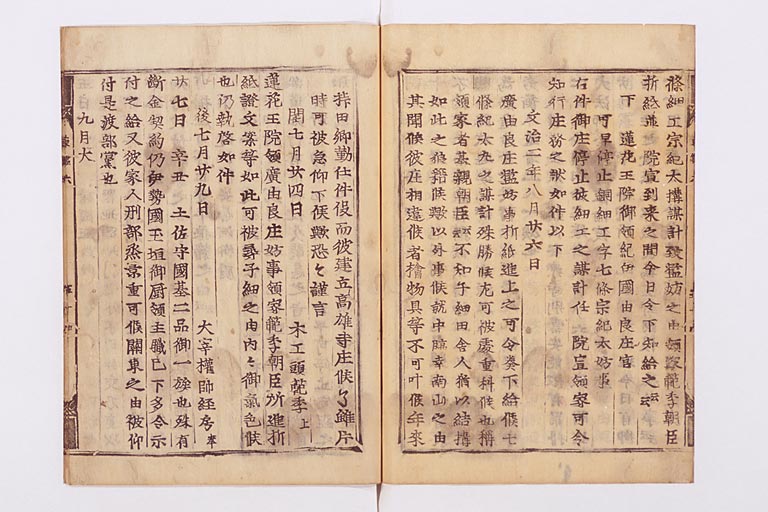 條細工宗紀太搆謀計致濫妨之由領家範季朝臣
折紙并院宣到來之間今日令下知給之云云
下 蓮花王院御領紀伊國由良庄官
可早停止銅細工字七條宗紀太妨事
右件御庄停止彼細工之謀計任 院宣領家可令
知行庄務之狀如件以下
文治二年八月廿六日
廣由良庄濫妨事折紙進上之可令奏下給候七
條紀太丸之謀計殊勝候尤可被處重科候也稱
領家者甚親朝臣云云不知子細田舍人猶以結搆
如此之猿猾候歟以此事候就中臨幸南山之由
其聞候彼庄相違候者檜物具等不可叶候年來
於田卿勤仕件役而彼建立高雄寺庄候了雖片
時可被急仰下候歟恐々謹言
閏七月廿四日 木工頭範季上
蓮花王院領廣由良庄妨事領家範季朝臣所進折
紙證文案等如此可被尋子細之由內々御氣色候
也仍執啓如件
後七月廿九日 大宰權帥經房奉
廿七日 辛丑 土佐守國基二品御一族也殊有
斷金契約仍伊勢國玉垣御厨領主職已下多令示
付之給又彼家人刑部丞常重可候關東之由被仰
付是渡部黨也
九月大